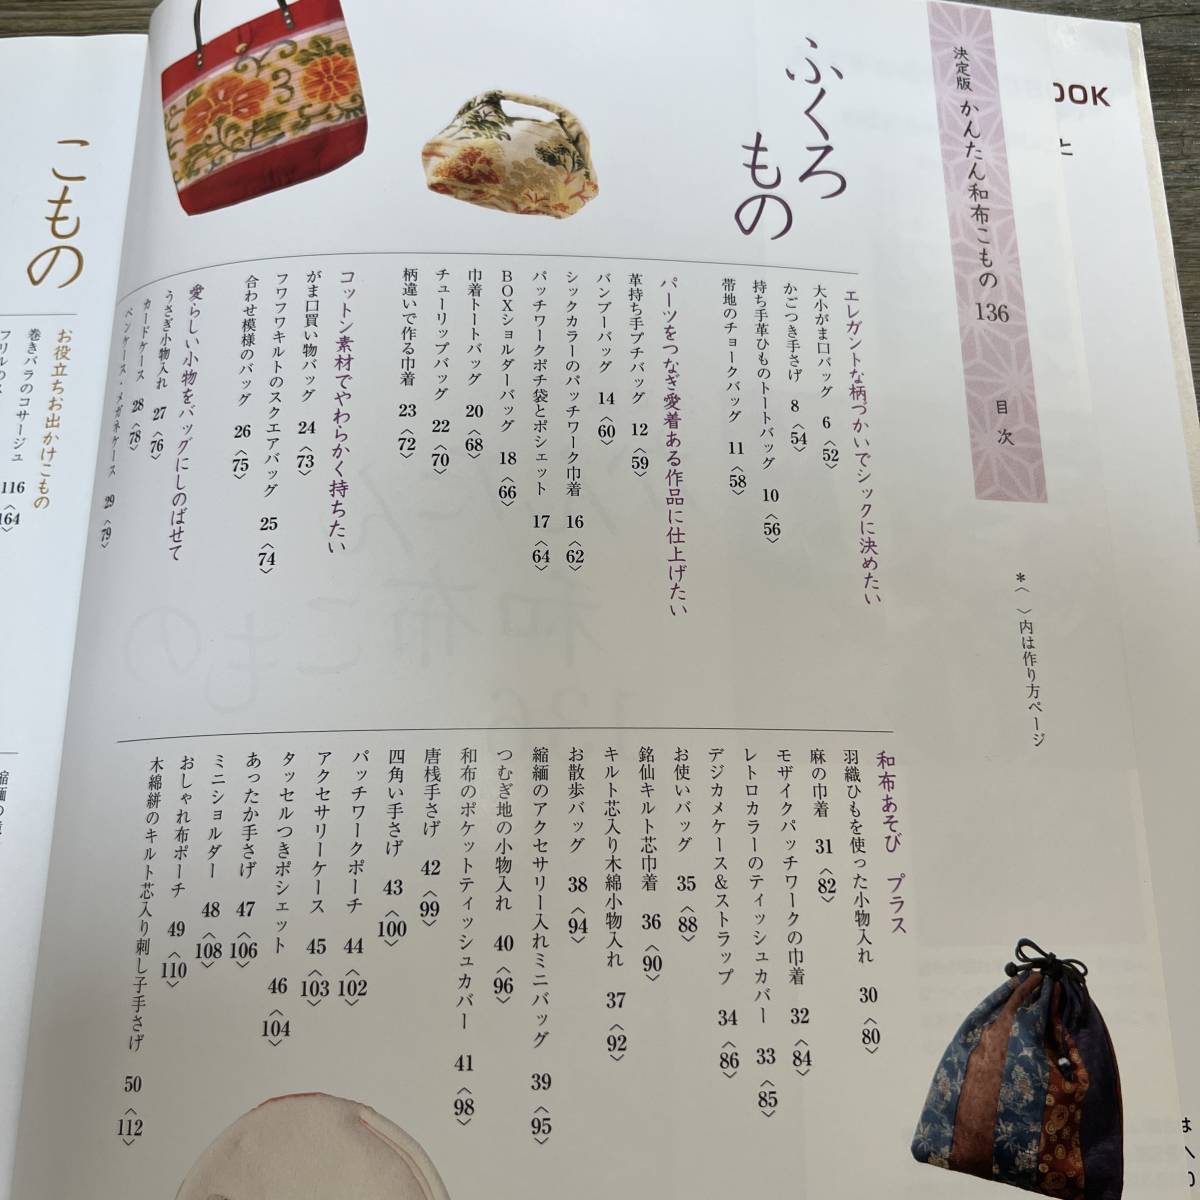 決定版 かんたん和布こもの 136 目次
*〈 〉内は作り方ページ
ふくろもの
エレガントな柄づかいでシックに決めたい
大小がま口バッグ 6 〈52〉
かごつき手さげ 8 〈54〉
持ち手革ひものトートバッグ 10 〈56〉
帯地のチョークバッグ 11 〈58〉
パーツをつなぎ愛着ある作品に仕上げたい
革持ち手プチバッグ 12 〈59〉
バンブーバッグ 14 〈60〉
シックカラーのパッチワーク巾着 16 〈62〉
パッチワークポチ袋とポシェット 17 〈64〉
BOXショルダーバッグ 18 〈66〉
巾着トートバッグ 20 〈68〉
チューリップバッグ 22 〈70〉
柄違いで作る巾着 23 〈72〉
コットン素材でやわらかく持ちたい
がま口買い物バッグ 24 〈73〉
フワフワキルトのスクエアバッグ 25 〈74〉
合わせ模様のバッグ 26 〈75〉
愛らしい小物をバッグにしのばせて
うさぎ小物入れ 27 〈76〉
カードケース 28 〈78〉
ペンケース・メガネケース 29 〈79〉
和布あそび プラス
羽織ひもを使った小物入れ 30 〈80〉
麻の巾着 31 〈82〉
モザイクパッチワークの巾着 32 〈84〉
レトロカラーのティッシュカバー 33 〈85〉
デジカメケース&ストラップ 34 〈86〉
お使いバッグ 35 〈88〉
銘仙キルト芯巾着 36 〈90〉
キルト芯入り木綿小物入れ 37 〈92〉
お散歩バッグ 38 〈94〉
縮緬のアクセサリー入れミニバッグ 39 〈95〉
つむぎ地の小物入れ 40 〈96〉
和布のポケットティッシュカバー 41 〈98〉
唐桟手さげ 42 〈99〉
四角い手さげ 43 〈100〉
パッチワークポーチ 44 〈102〉
アクセサリーケース 45 〈103〉
タッセルつきポシェット 46 〈104〉
あったか手さげ 47 〈106〉
ミニショルダー 48 〈108〉
おしゃれ布ポーチ 49 〈110〉
木綿絣のキルト芯入り刺し子手さげ 50 〈112〉
こもの
お役立ちお出かけこもの
巻きバラのコサージュ 116 〈164〉
フリルの
縮緬の
OOK
と